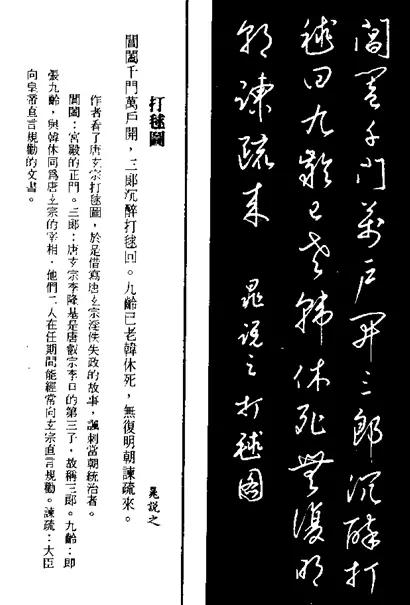 閶闔千門萬戶開三郎沉醉打
毬回九齡已老韓休死無復明
朝諫疏來 晁說之打毬圖
打毬圖
晁說之
閶闔千門萬戶開，三郎沉醉打毬回。九齡已老韓休死，無復明朝諫疏來。
作者看了唐玄宗打毬圖，於是借寫唐玄宗淫佚失政的故事，諷刺當朝統治者。
閶闔：宮殿的正門。三郎：唐玄宗李隆基是唐叡宗李旦的第三子，故稱三郎。九齡：即
張九齡，與韓休同爲唐玄宗的宰相，他們二人在任期間能經常向玄宗直言規勸。諫疏：大臣
向皇帝直言規勸的文書。